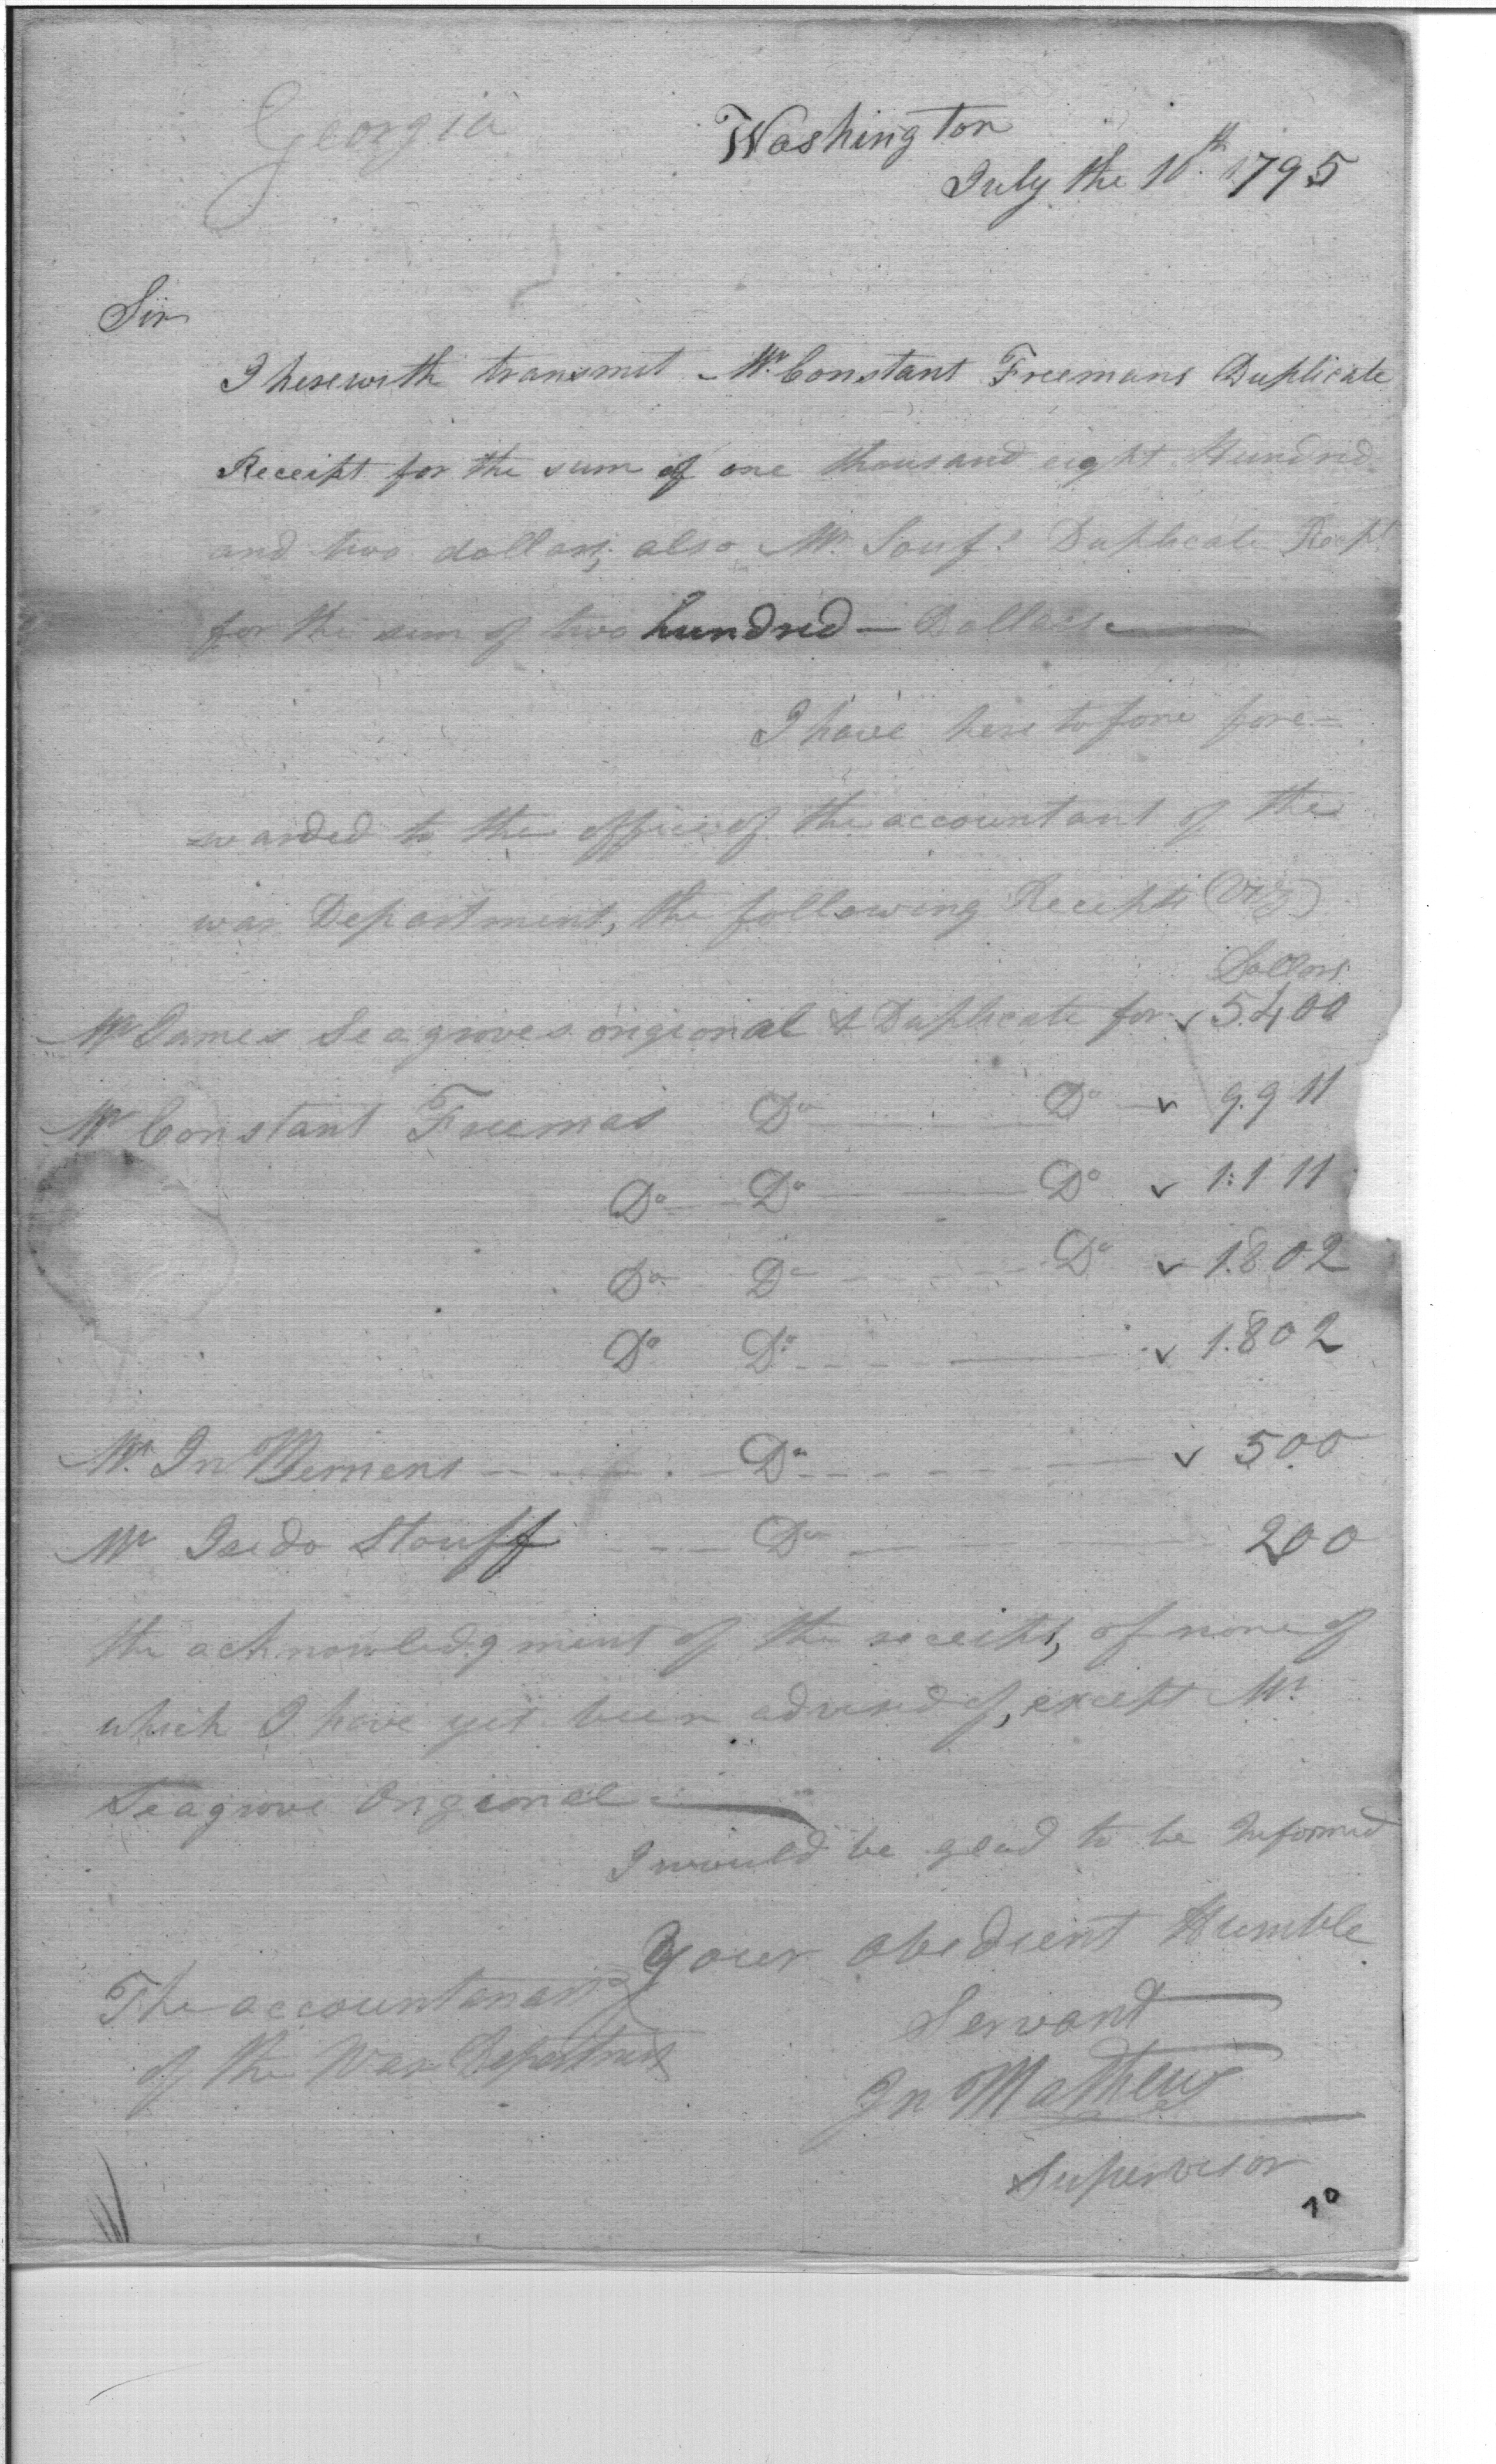 Georgia
Washington
July the 10th. 1795
Sir
I herewith transmit Mr. Constant Freemans Duplicate
Receipt for the sum of one thousand eight Hundred
and two dollars; also Mr. Duplicate
for the sum of two hundred — Dollars
I have heretofore fore-
warded to the office of the accountant of the
war Department, the following Receipts (Viz)
Dollars
Mr James Seagroves origional & Duplicate for 5.400
Mr Constant Freemas Do Do 9.911
Do Do Do 1:111
Do Do Do 1.802
Do Do 1.802
Mr. Jn Do 500
Mr Stouff Do 200
the acknowledgment of the receipts, of none of
which I have yet been advised of, except Mr.
Seagrove Origional
I would be glad to be Informed
Your obedient Humble
Servant
The accountanant
of the War Department
Jn Mathews
Supervisor
10